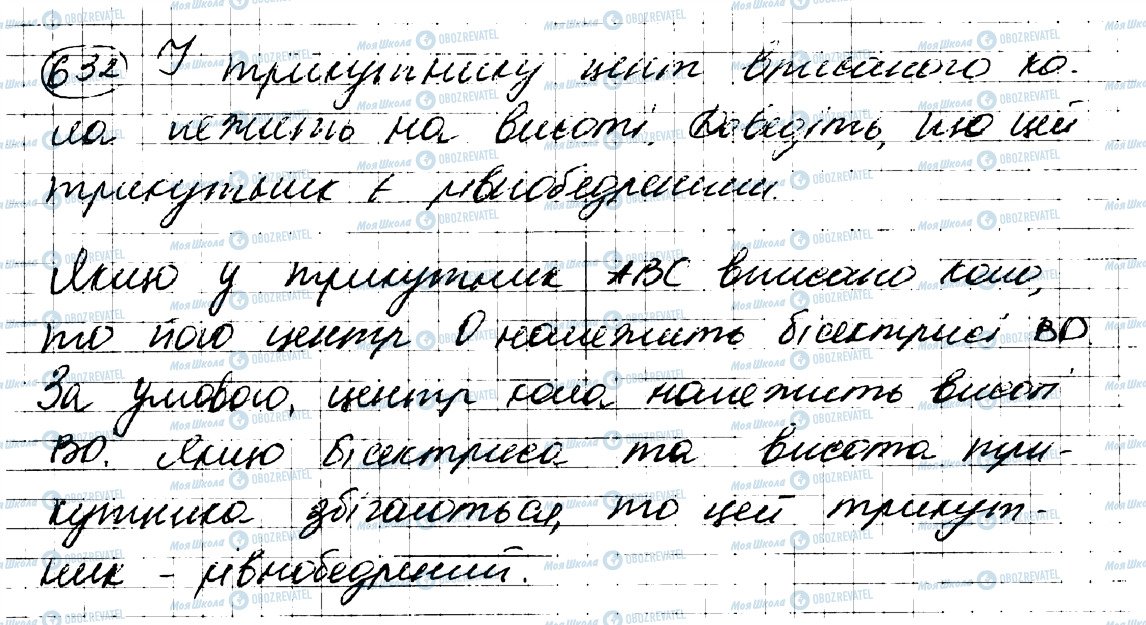 632 У трикутнику центр вписаного ко-
ла лежить на висоті. Доведіть, що цей
трикутник є рівнобедреним.
Якщо у трикутник ABC вписано коло,
то його центр O належить бісектрисі BD.
За умовою, центр кола належить висоті
BD. Якщо бісектриса та висота три-
кутника збігаються, то цей трикут-
ник - рівнобедрений.